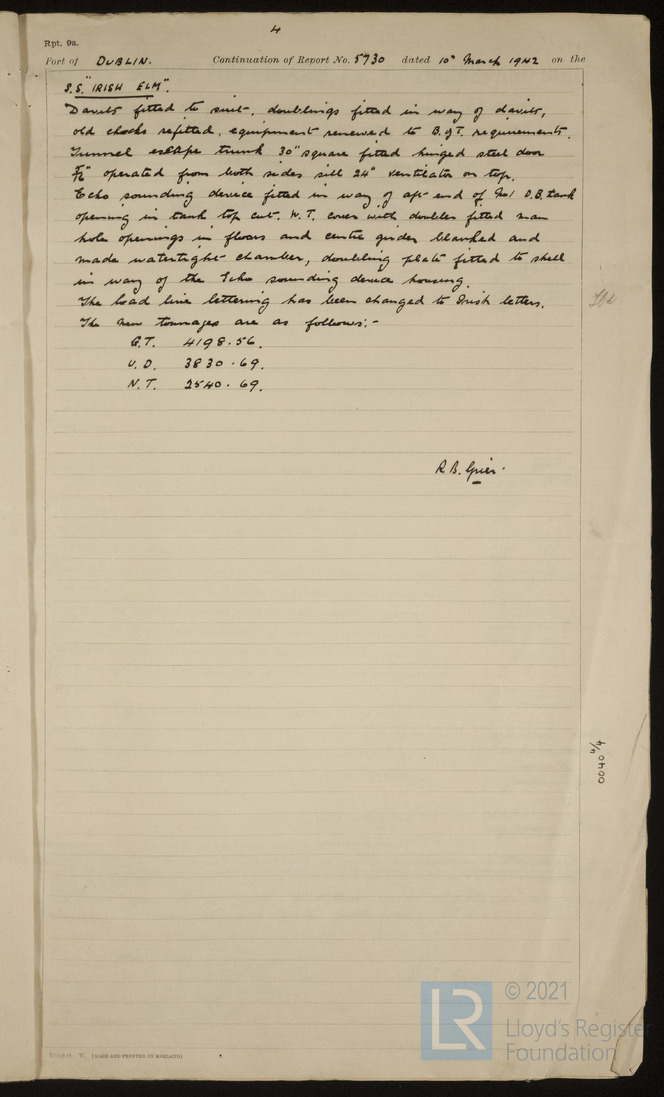 4
Rpt. 9a.
Port of DUBLIN. Continuation of Report No. 5730 dated 10th March 1942 on the
S.S. "IRISH ELM".
Davits fitted to suit, doublings fitted in way of davits,
old chocks refitted, equipment renewed to B.of T. requirements.
Tunnel escape trunk 30" square fitted hinged steel door
operated from both sides sill 24" ventilator on top.
Echo sounding device fitted in way of aft end of No 1 D.B. tank
opening in tank top cut. W.T. cover with doubler fitted man
hole openings in floors and centre girder blanked and
made watertight chamber, doubling plate fitted to shell
in way of the Echo sounding device housing.
The load line lettering has been changed to Irish letters.
The new tonnages are as follows:-
G.T. 4198.56.
U.D. 3830.69.
N.T. 2540.69.
R.B. Grier.
0040 4/4
(MADE AND PRINTED IN ENGLAND)
LR
© 2021
Lloyd's Register
Foundation